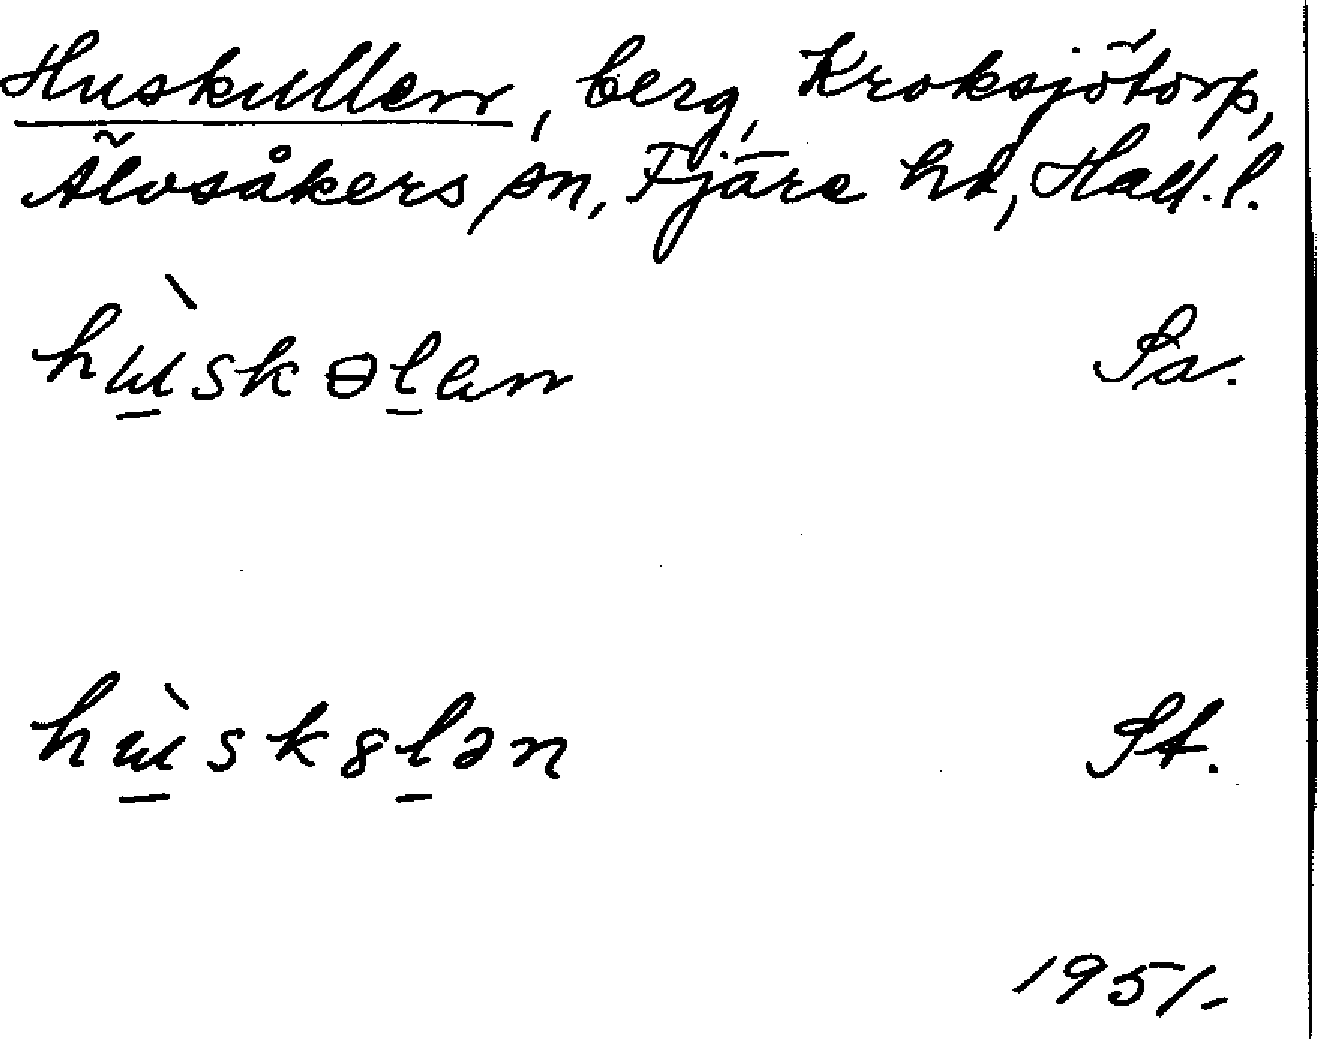 Huskullen, berg, Kroksjötorp,
Älvsåkers sn, Fjäre hd, Hall. l.
hɯ̠̀skɵl̠an Sa.
hɯ̠̀sk8l̠ən St.
1951-